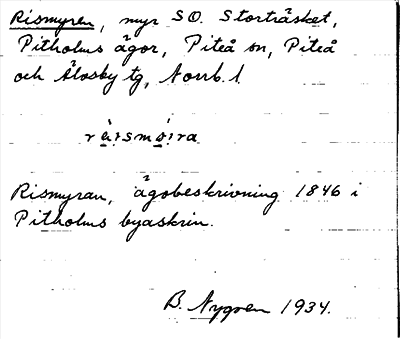 Rismyren, myr SO. Storträsket,
Pitholms ägor, Piteå sn, Piteå
och Älvsby tg, Norrb. l.
Rismyran, ägobeskrivning 1846 i
Pitholms byaskrin.
B. Nygren 1934.